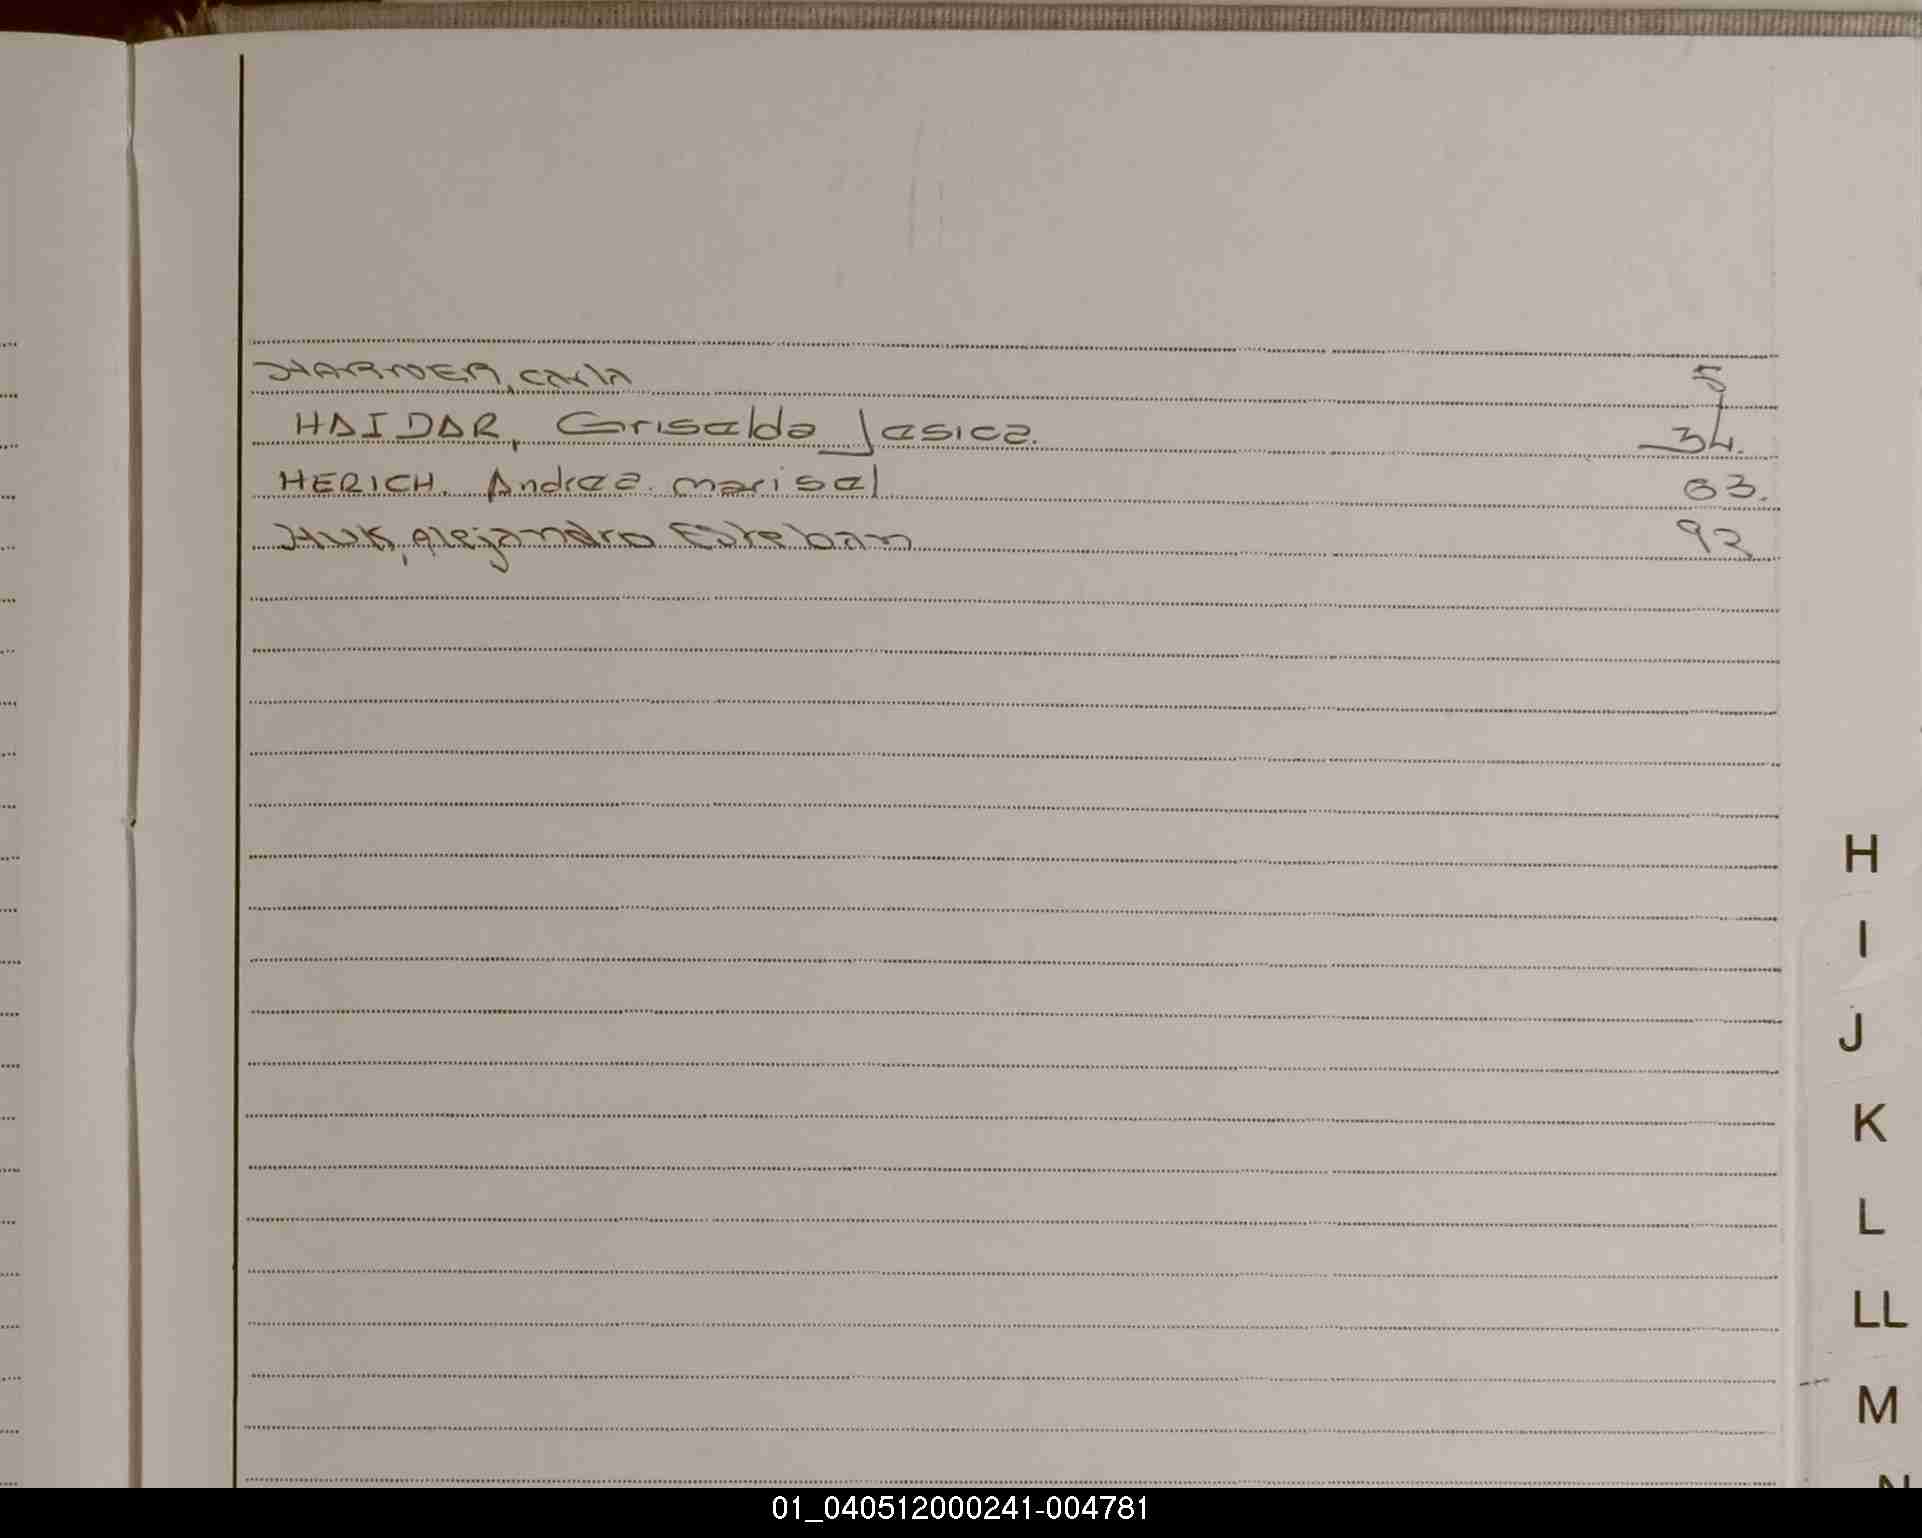 HARNER, Carla 5
HAIDAR, Griselda Jesica. 34.
HERICH. Andrea. Marisel 63.
HUK, Alejandro Esteban 92
H
I
J
K
L
LL
M
N
01_040512000241-004781